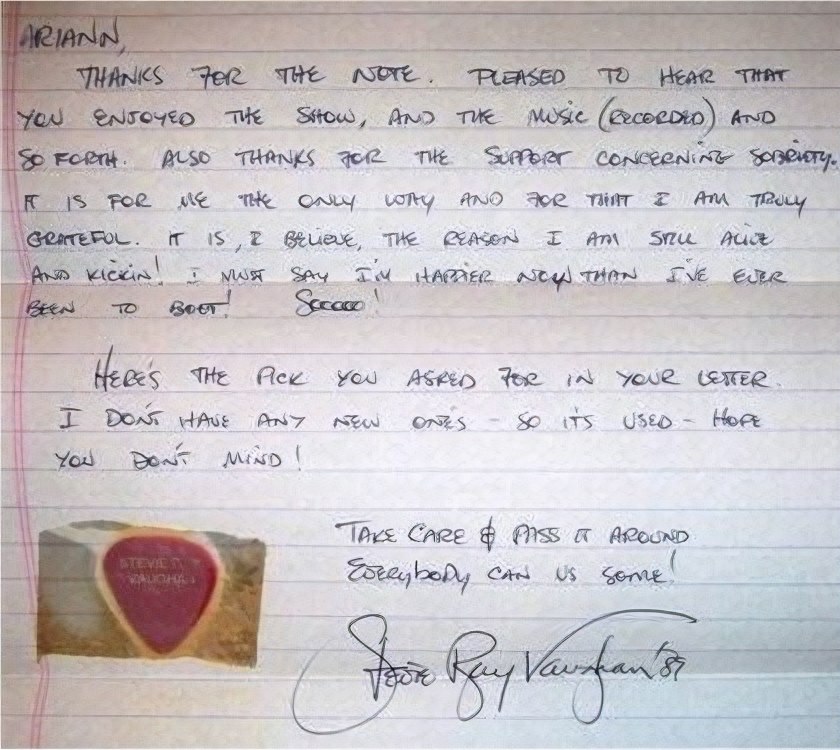 ARIANN,
THANKS FOR THE NOTE. PLEASED TO HEAR THAT
YOU ENJOYED THE SHOW, AND THE MUSIC (RECORDED) AND
SO FORTH. ALSO THANKS FOR THE SUPPORT CONCERNING SOBRIETY.
IT IS FOR ME THE ONLY WAY AND FOR THAT I AM TRULY
GRATEFUL. IT IS, I BELIEVE, THE REASON I AM STILL ALIVE
AND KICKIN! I MUST SAY I'M HAPPIER NOW THAN I'VE EVER
BEEN TO BOOT! Sooooo!
HERE'S THE PICK YOU ASKED FOR IN YOUR LETTER.
I DON'T HAVE ANY NEW ONE'S - SO IT'S USED - HOPE
YOU DON'T MIND!
TAKE CARE & PASS IT AROUND
EVERYBODY CAN US SOME!
STEVIE R.
VAUGHAN
Stevie Ray Vaughan '87